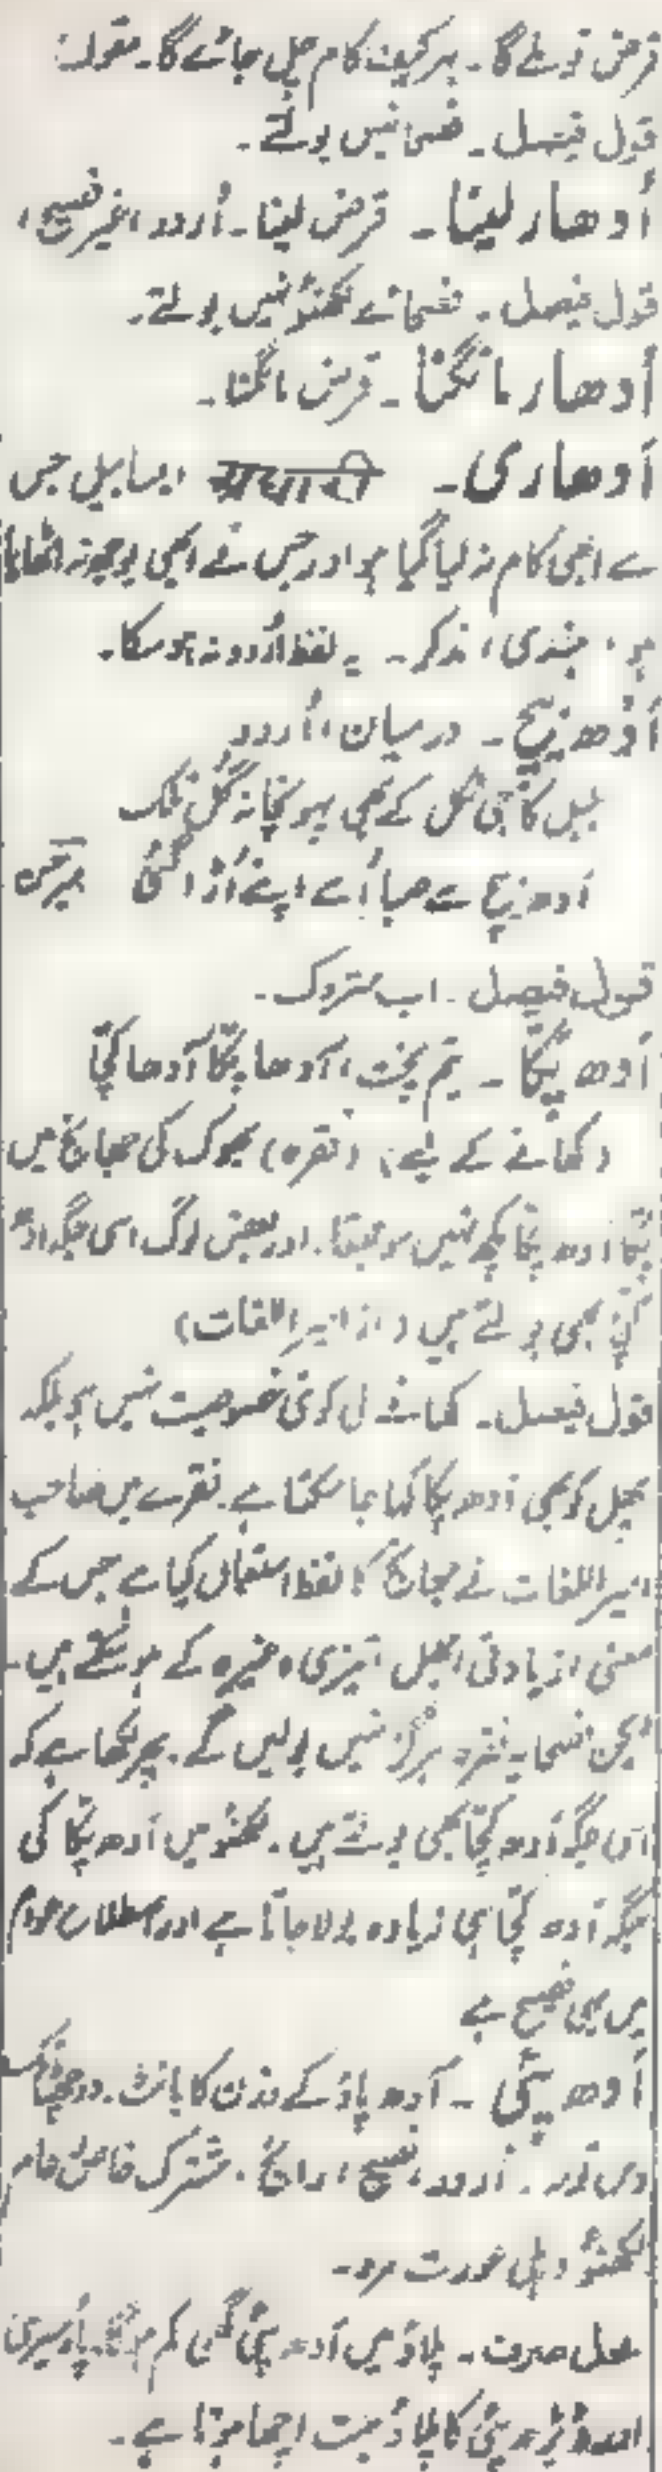 قرض تو ملے گا۔ بہر کیف کام چل جائے گا۔ مقولہ:
قول فیصل۔ فصحا نہیں بولتے۔
اُدھار لینا۔ قرض لینا۔ اُردو، غیر فصیح،
قول فیصل۔ فصحائے لکھنؤ نہیں بولتے۔
اُدھار مانگنا۔ قرض مانگنا۔
اَدھاری۔ अधारी ایسا بیل جس
سے ابھی کام نہ لیا گیا ہو اور جس نے ابھی بوجھ نہ اٹھایا
ہو، ہندی، مذکر۔ یہ لفظ اُردو نہ ہو سکا۔
اَدھ بیچ۔ درمیان، اُردو
بلبل کا جی نکل کے بھی پہونچا نہ گل تلک
اَدھ بیچ سے صبا اُسے اپنے اُڑا گئی میرحسن
قول فیصل۔ اب متروک۔
اَدھ پکّا۔ نیم پخت، آدھا پکّا آدھا کچّا
(کھانے کے لیے) (فقرہ) بھوک کی میں
پکّا ادھ پکّا کچھ نہیں سوجھتا۔ اور بعض لوگ اسی جگہ ادھ
کچّا بھی بولتے ہیں (از امیر اللغات)
قول فیصل۔ کوئی خصوصیت نہیں ہو بلکہ
پھل کو بھی اَدھ پکا کہا جا سکتا ہے۔ فقرے میں صاحب
امیر اللغات نے کا لفظ استعمال کیا ہے جس کے
معنی زیادتی تیزی وغیرہ کے ہو سکتے ہیں۔
لیکن فصحا یہ فقرہ ہرگز نہیں بولیں گے۔ پھر لکھا ہے کہ
اس جگہ اَدھ کچّا بھی بولتے ہیں۔ لکھنؤ میں اَدھ پکّا کی
جگہ اَدھ کچّا ہی زیادہ بولا جاتا ہے اور اصطلاح عوام
میں یہی فصیح ہے
اَدھ پئی۔ آدھ پاؤ کے وزن کا بانٹ۔ دو چھٹانک
اُردو، فصیح، رائج۔ مشترک خاص و عام
لکھنؤ دہلی عورت مرد۔
محل صرف۔ پلاؤ میں اَدھ پئی گھی کم ہوگا۔ پاؤ سیری
اور ڈیڑھ پئی کا پلاؤ بہت اچھا ہوتا ہے۔